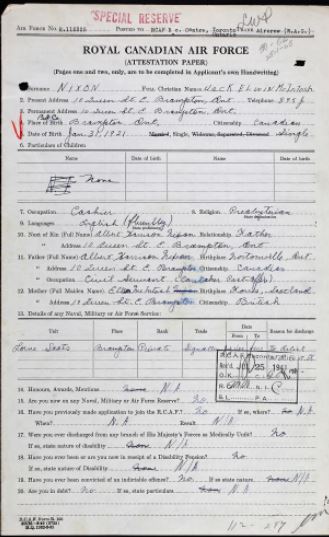 "SPECIAL RESERVE"
No. R.115325 POSTED TO RCAF Toronto Ontario Aircrew
ROYAL CANADIAN AIR FORCE
(ATTESTATION PAPER)
(Pages one and two, only, are to be completed in Applicant's own Handwriting)
1. Surname NIXON Full Christian Names JACK ELWIN McIntosh
2. Present Address 10 Queen St. E. Brampton, Ont. Telephone 595
3. Permanent Address 10 Queen St. E. Brampton, Ont.
Peel Co.
4. Place of Birth Brampton Ont. Citizenship Canadian
5. Date of Birth Jan. 31, 1921. Married, Single, Widower, Separated, Divorced Single
6. Particulars of Children:
NAME DATE OF BIRTH NAME DATE OF BIRTH
None
7. Occupation: Cashier 8. Religion: Presbyterian
9. Languages English (fluently)
10. Next of Kin (Full Name) Albert Harrison Nixon Relationship Father
" Address 10 Queen St. E. Brampton, Ont
11. Father (Full Name) Albert Harrison Nixon Birthplace Ont.
" Address 10 Queen St. E. Brampton Citizenship Canadian
" Occupation Civil Servant
12. Mother (Full Maiden Name) Birthplace
" Address 10 Queen St. E. Brampton Citizenship British
13. Details of any Naval, Military or Air Force Service:
Unit Place Rank Trade From To Reason for discharge
Lorne Scots Brampton Private
R.C.A.F.
25 1941
14. Honours, Awards, Mentions none N.A
15. Are you now on any Naval, Military or Air Force Reserve? No.
16. Have you previously made application to join the R.C.A.F.? no If so, where? no N.A
When? N.A Result N/A
17. Were you ever discharged from any branch of His Majesty's Forces as Medically Unfit? no
If so, state nature of disability none N/A
18. Have you ever been or are you now in receipt of a Disability Pension? No.
If so, state nature of Disability none N/A
19. Have you ever been convicted of an indictable offence? no. If so, state nature none N/A
20. Are you in debt? no If so, state particulars none N.A
112-287